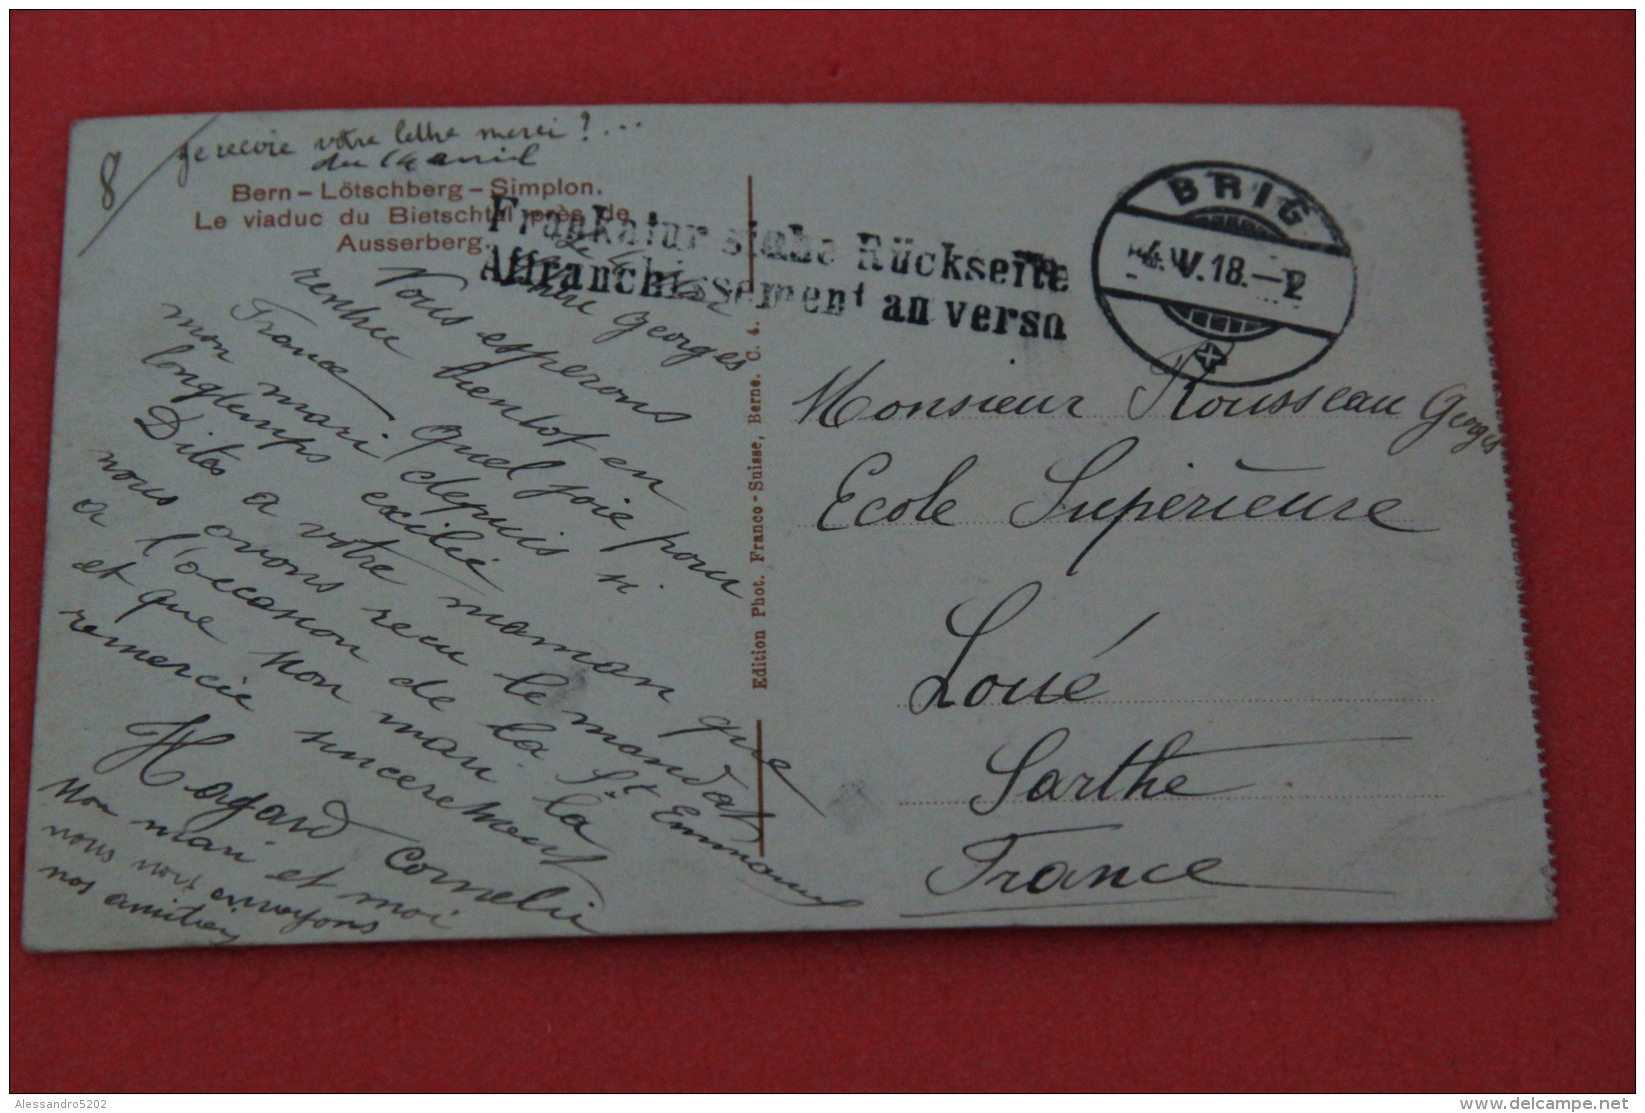 8
je recois votre lettre merci ?...
du 14 avril
Bern – Lötschberg – Simplon.
Le viaduc du Bietschtal près de
Ausserberg.
Frankatur siehe Rückseite
Affranchissement au verso
BRIG
4. V. 18. – 2
Georges
Nous esperons
rentrer bientot en
France quel joie pour
mon mari depuis si
longtemps exilié
Dites a votre maman que
nous avons recu le mandat
a l'occasion de la St Emma
et que mon mari la
remercie sincerement
Hagard Cornelie
Mon mari et moi
nous vous envoyons
nos amitiés
Edition Phot. Franco-Suisse, Berne. C. 4.
Monsieur Rousseau Georges
Ecole Supérieure
Loué
Sarthe
France
Alessandro5202
delcampe.net